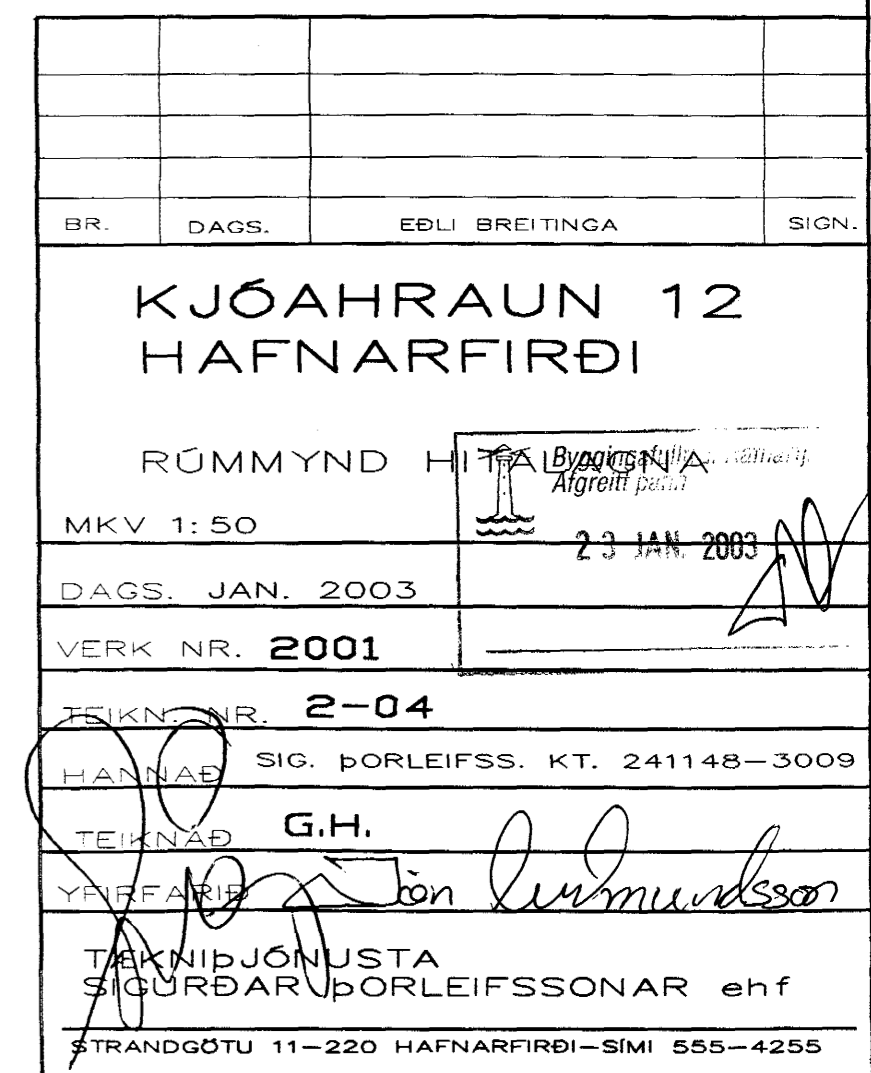 BR. DAGS. EÐLI BREITINGA SIGN.
KJÓAHRAUN 12
HAFNARFIRÐI
RÚMMYND HITALAGNA
Afgreitt
MKV 1:50
23 JAN. 2003
DAGS. JAN. 2003
VERK NR. 2001
TEIKN. NR. 2-04
HANNAÐ SIG. ÞORLEIFSS. KT. 241148-3009
TEIKNAÐ G.H.
YFIRFARIÐ Jón Guðmundsson
TÆKNIÞJÓNUSTA
SIGURÐAR ÞORLEIFSSONAR ehf
STRANDGÖTU 11-220 HAFNARFIRÐI-SÍMI 555-4255